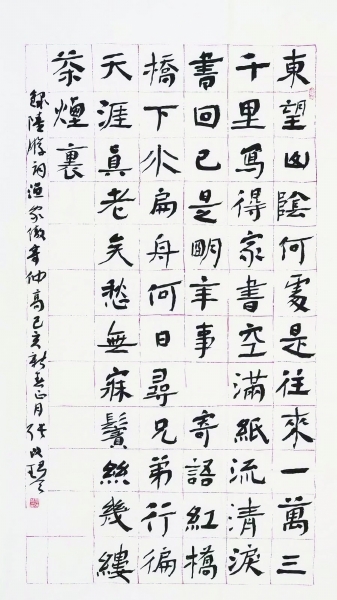 東望山陰何處是往來一萬三
千里寫得家書空滿紙流清淚
書回已是明年事 寄語紅橋
橋下水扁舟何日尋兄弟行徧
天涯真老矣愁無寐鬢絲幾縷
茶煙裏
錄陸游詞漁家傲寄仲高己亥新春正月張改琴